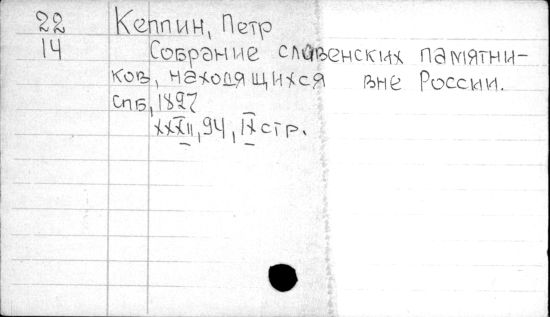 22 Кеппин, Петр
14 Собрание славенских памятни-
ков, находящихся вне России.
СПБ, 1827
XXXII, 94, IX стр.